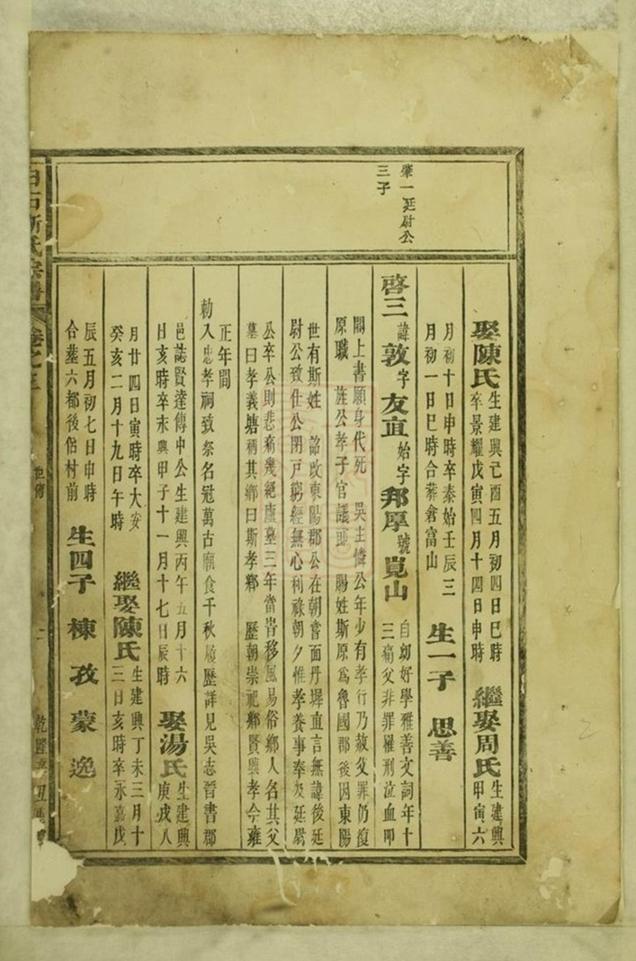 肇一廷尉公
三子
娶陳氏
生建興己酉五月初四日巳時
卒景耀戊寅四月十四日申時
繼娶周氏
生建興
甲寅六
月初十日申時卒泰始壬辰三
月初一日巳時合葬倉富山
生一子 思善
啓三
諱敦字友直始字邦厚號嵬山
自幼好學雅善文詞年十
三痛父非罪罹刑泣血叩
閽上書願身代死 吳主憐公年少有孝行乃赦父罪仍復
原職 旌公孝子官議郎 賜姓斯原爲魯國郡後因東陽
世有斯姓 詔改東陽郡公在朝嘗面丹墀直言無諱後廷
尉公致仕公閉戶窮經無心利祿朝夕惟孝養事奉及廷尉
公卒公則悲痛幾絕廬墓三年當時移風易俗鄉人名其父
墓曰孝義塘稱其鄉曰斯孝鄉 歷朝崇祀鄉賢興孝今雍
正年間
勅入忠孝祠致祭名冠萬古廟食千秋履歷詳見吳志晉書郡
邑誌賢達傳中公生建興丙午五月十六
日亥時卒未興甲子十一月十七日辰時
娶湯氏
生建興
庚戌八
月廿四日寅時卒大安
癸亥二月十九日午時
繼娶陳氏
生建興丁未三月十
三日亥時卒永嘉戊
辰五月初七日申時
合墓六都後倍村前
生四子 棟 孜 蒙 逸
白石斯氏宗譜 卷之三